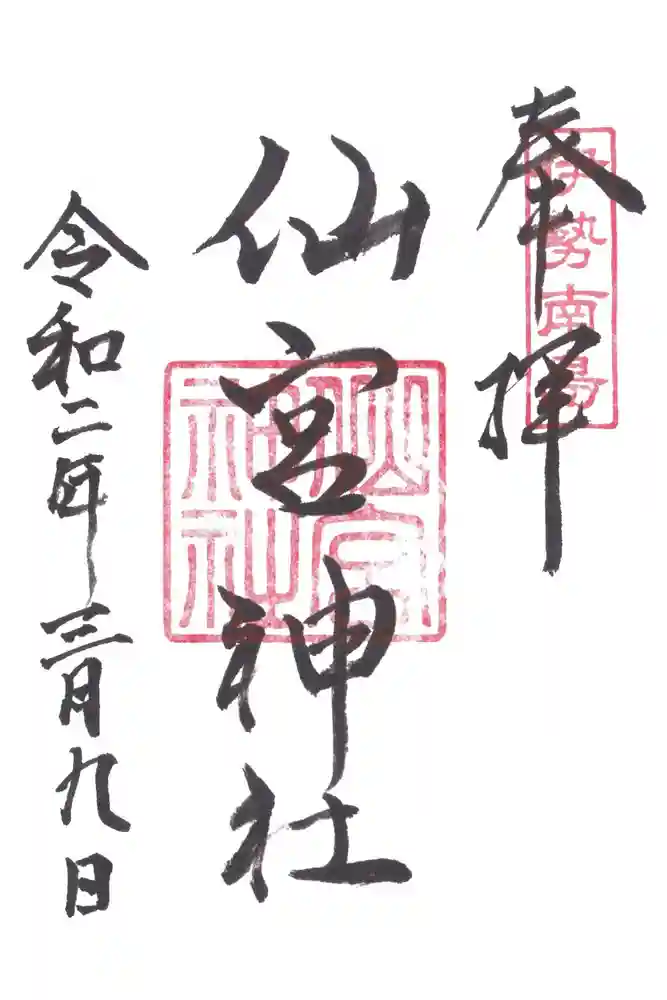 奉拝
伊勢南島
仙宮神社
仙宮神社
令和二年三月九日